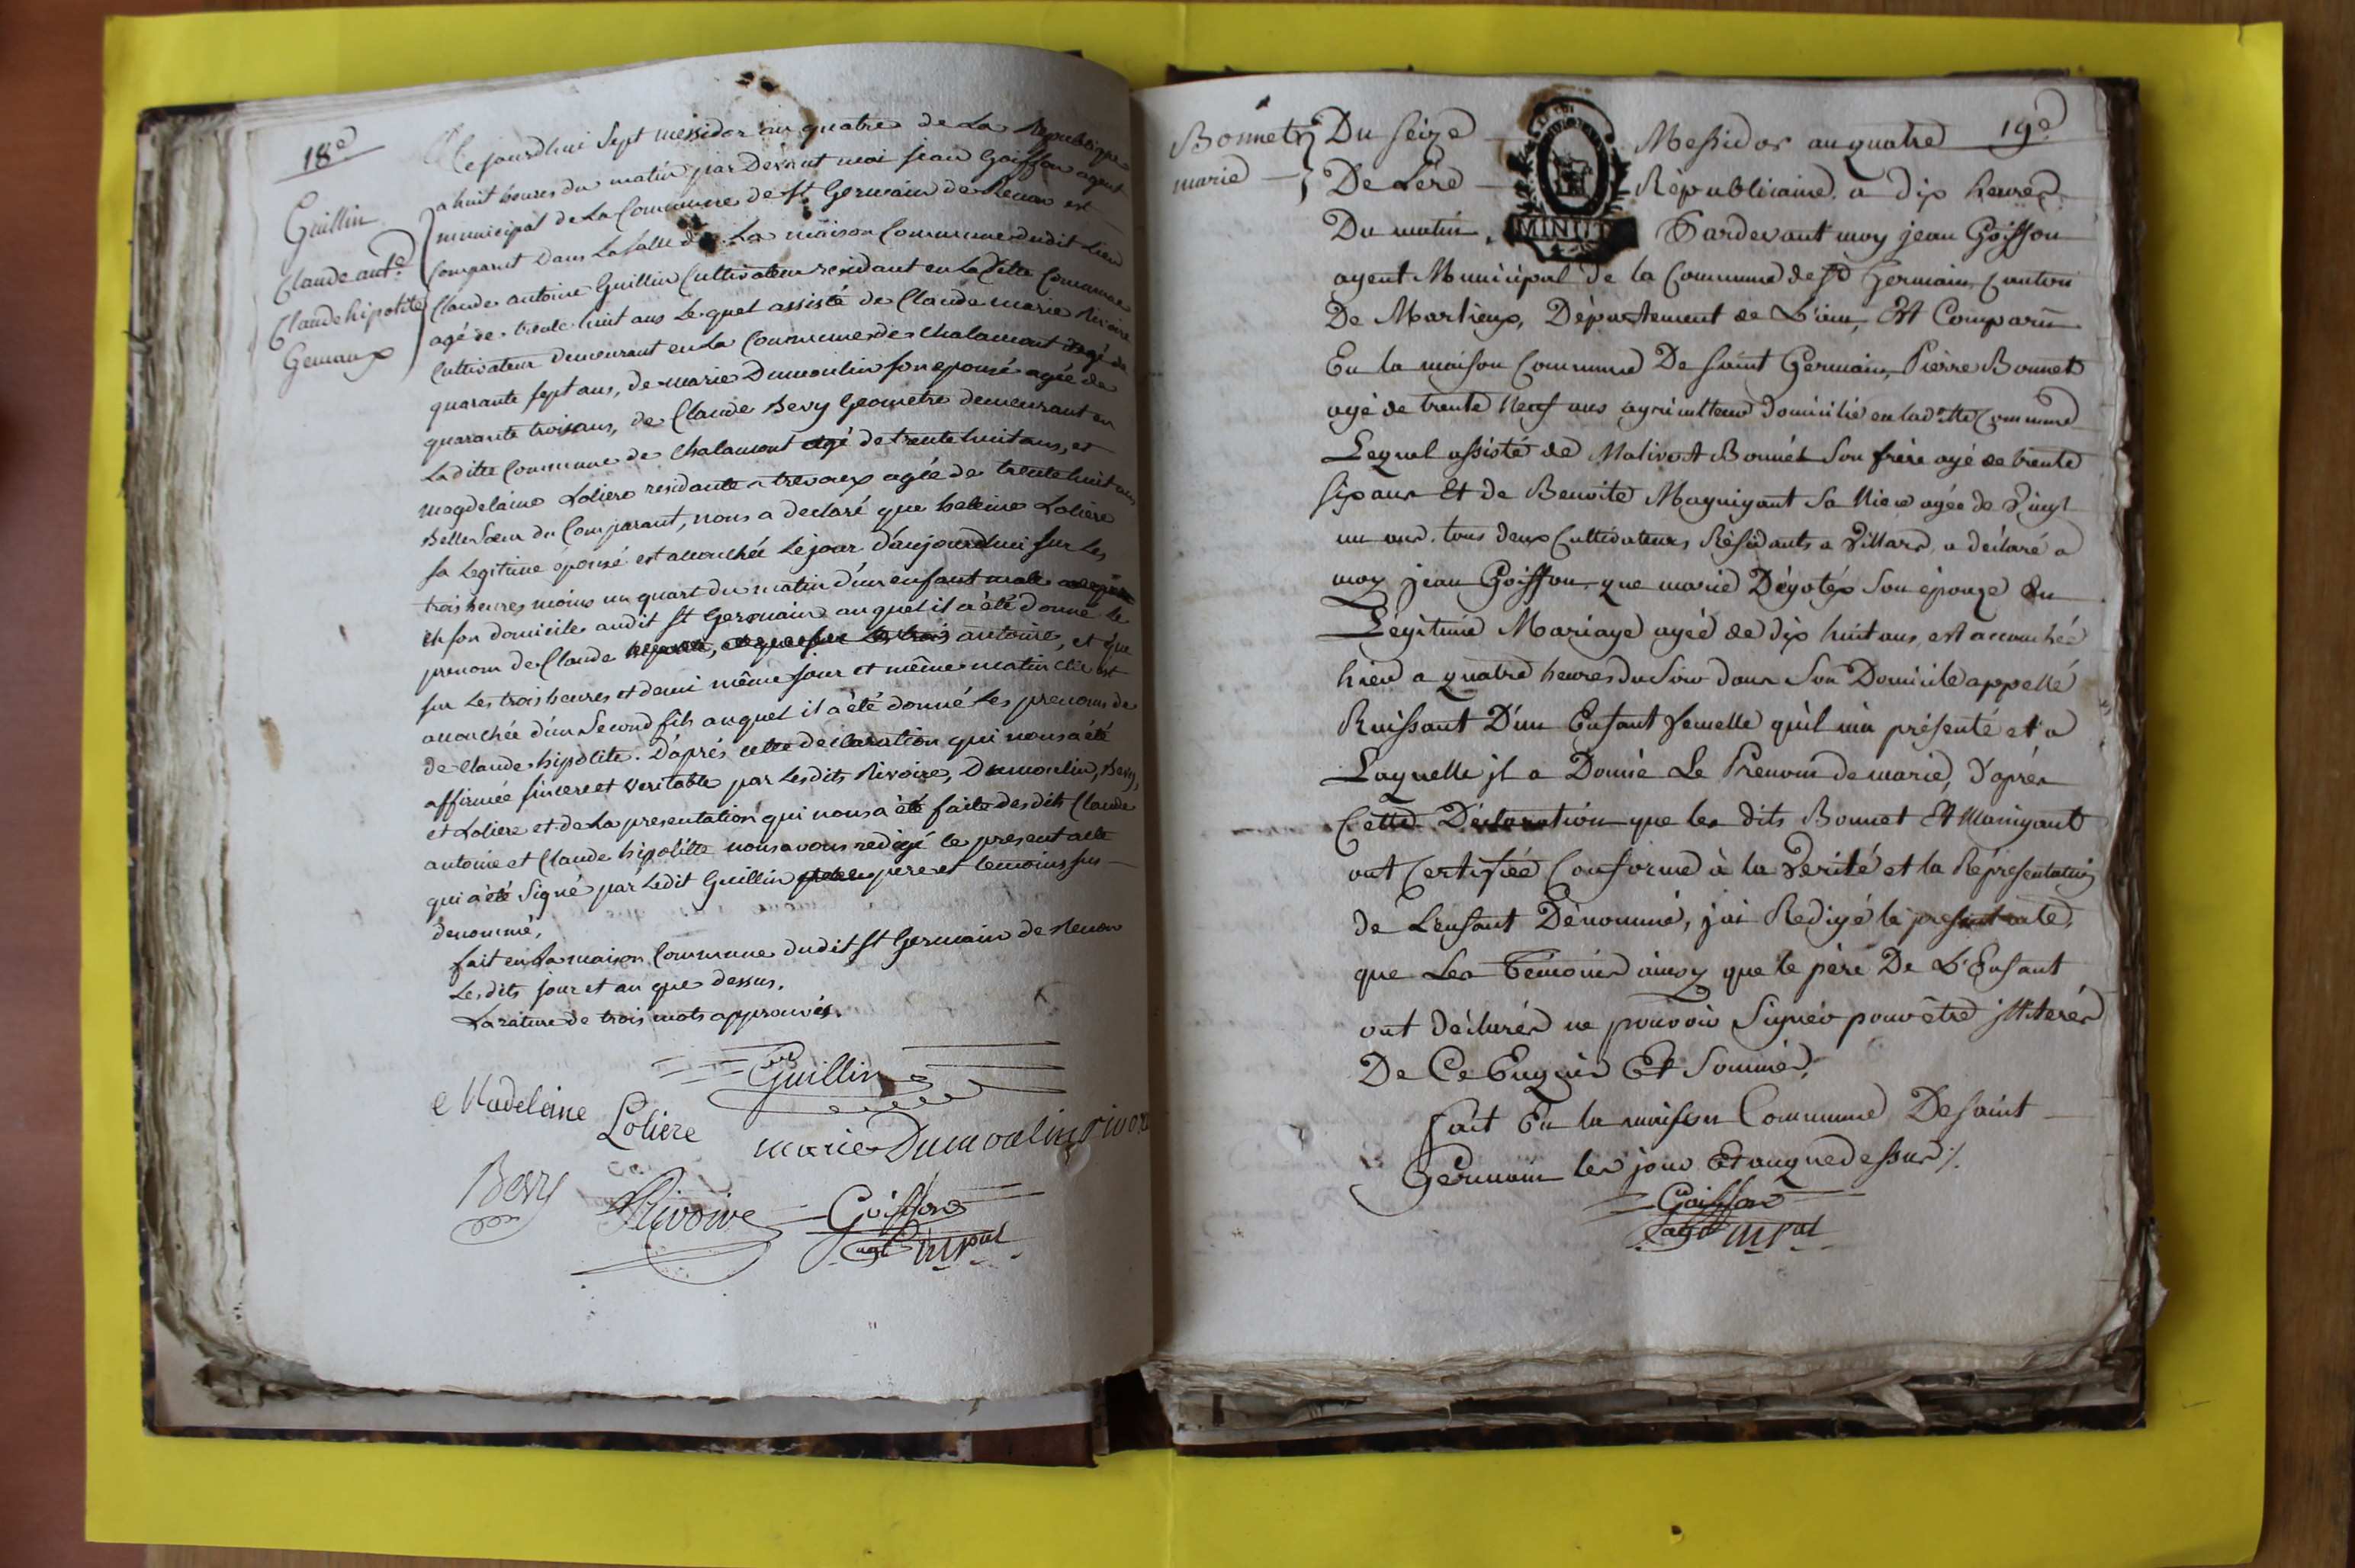 18e
Guillin
Claude ante
Claude hipolite
Gemaux
Ce jourdhui sept messidor an quatre de La Republique
a huit heures du matin par Devant moi jean Goiffon agent
municipal de La Commune de St Germain de Renon est
Comparut Dans La salle de La maison Commune dudit Lieu
Claude antoine Guillin Cultivateur residant en La ditte Commune
agé de trente huit ans Lequel assisté de Claude marie Rivoire
Cultivateur demeurant en La Commune de Chalamont agé de
quarante sept ans, de marie Dumoulin son epouse agée de
quarante trois ans, de Claude Bevy Geometre demeurant en
La ditte Commune de Chalamont agé de trente huit ans, et
magdelaine Loliere residante a trevoux agée de trente huit ans
Belle Sœur du Comparant, nous a declaré que heleine Loliere
sa Legitime épouse est accouchée Le jour d'aujourdhui sur Les
trois heures moins un quart du matin d'un enfant male
en son domicile audit St Germain auquel il a été donné le
prenom de Claude antoine, et que
sur Les trois heures et demi même jour et même matin elle est
accouchée d'un Second fils auquel il a été donné Les prenoms de
de Claude hipolite. D'après cette declaration qui nous a été
affirmée sincere et veritable par Lesdits Rivoire, Dumoulin, Bevy,
et Loliere et de La presentation qui nous a été faite desdits Claude
antoine et Claude hipolitte nous avons redigé le present acte
qui a été Signé par Ledit Guillin pere et temoins sus
denommé,
fait en La maison Commune dudit St Germain de Renon
Lesdits jour et an que dessus.
La rature de trois mots approuvés.
Guillin
Madeleine Loliere
marie Dumoulin rivoire
Bevy
Rivoire
Goiffon
agt mpal
Bonnet
marie
19e
Du seize Messidor an quatre
De Lère Républicaine, a dix heures
MINUTE
Du matin, Pardevant moy jean Goiffon
agent Municipal de la Commune de St Germain, Canton
De Marlieux, Département de L'ain, Est Comparu
En la maison Commune De saint Germain, Pierre Bonnet
agé de trente Neuf ans agriculteur domicilié en laditte Commune
Lequel assisté de Malivert Bonnet Son frère agé de trente
six ans Et de Benoite Magnigant Sa Niece agée de Vingt
un ans. tous deux Cultivateurs Résidants a Villars, a déclaré a
moy jean Goiffon que marie Dégotex Son épouze En
Légitime Mariage agée de dix huit ans, est accouchée
hier a quatre heures du Soir dans Son Domicile appellé
Ruissant D'un Enfant femelle qu'il m'a présenté et a
Laquelle jl a Donné Le Prenom de marie, d'après
Cette Déclaration que les dits Bonnet Et Manigant
ont Certifiée Conforme à la Verité et la Répresentation
de L'enfant Dénommé, j'ai Redigé le present acte,
que Les Témoins ainsy que le père De L'Enfant
ont declarés ne pouvoir Signer pour être jlliterés
De Ce Enquis Et Sommés,
Fait En la maison Commune De saint
Germain les jour Et an que dessus ./.
Goiffon
agt mpal